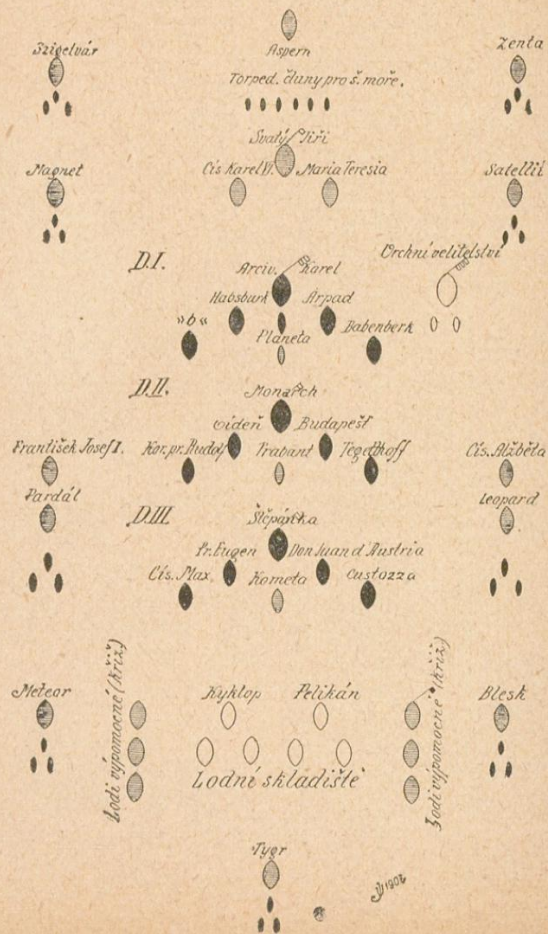 Aspern
Szigetvár
Zenta
Torped. čluny pro š. moře.
Svatý Jiří
Magnet
Cís Karel VI.
Maria Teresia
Satellit
D.I.
Arciv. Karel
Vrchní velitelství
Habsburk
Árpad
»b«
Planeta
Babenberk
D.II.
Monarch
Vídeň
Budapešť
František Josef I.
Kor. pr. Rudolf
Trabant
Tegetthoff
Cís. Alžběta
Pardál
Leopard
D.III
Štěpánka
Pr. Eugen
Don Juan d'Austria
Cís. Max.
Kometa
Custozza
Lodi výpomocné (kříž.)
Lodi výpomocné (kříž.)
Meteor
Kyklop
Pelikán
Blesk
Lodní skladiště
Tygr
1902